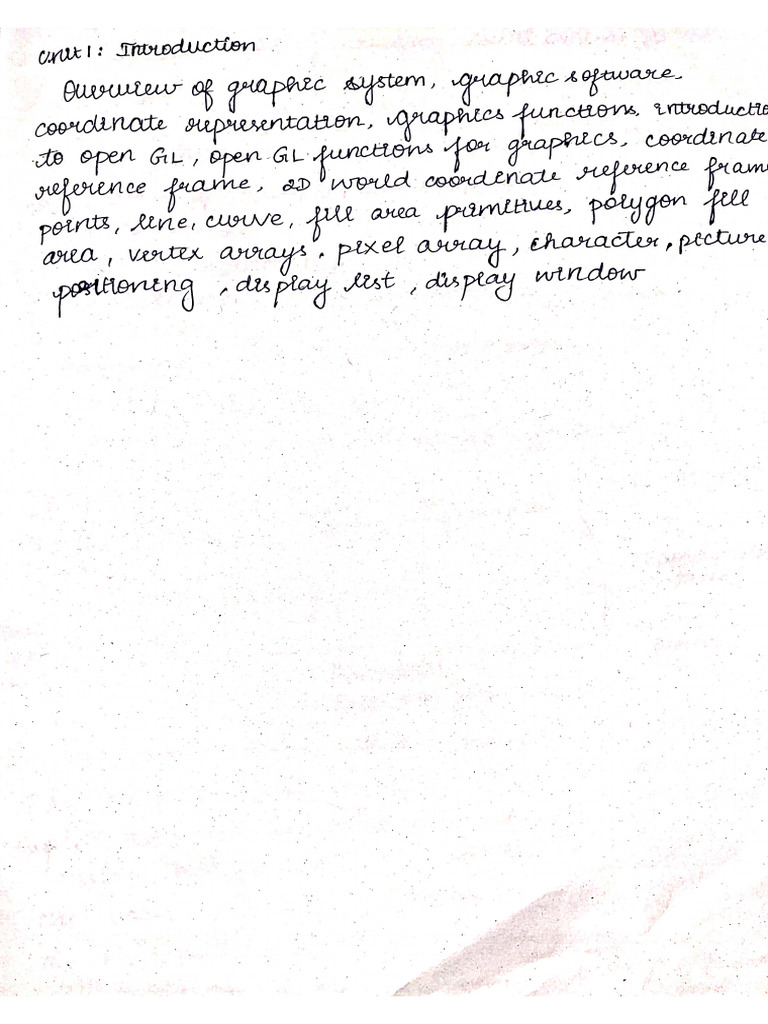 Unit 1: Introduction
Overview of graphic system, graphic software.
coordinate representation, graphics functions. introductio
to open GL, open GL functions for graphics, coordinate
reference frame, 2D world coordinate reference fram
points, line, curve, fill area primitives, polygon fill
area, vertex arrays. pixel array, character, picture
positioning, display list, display window